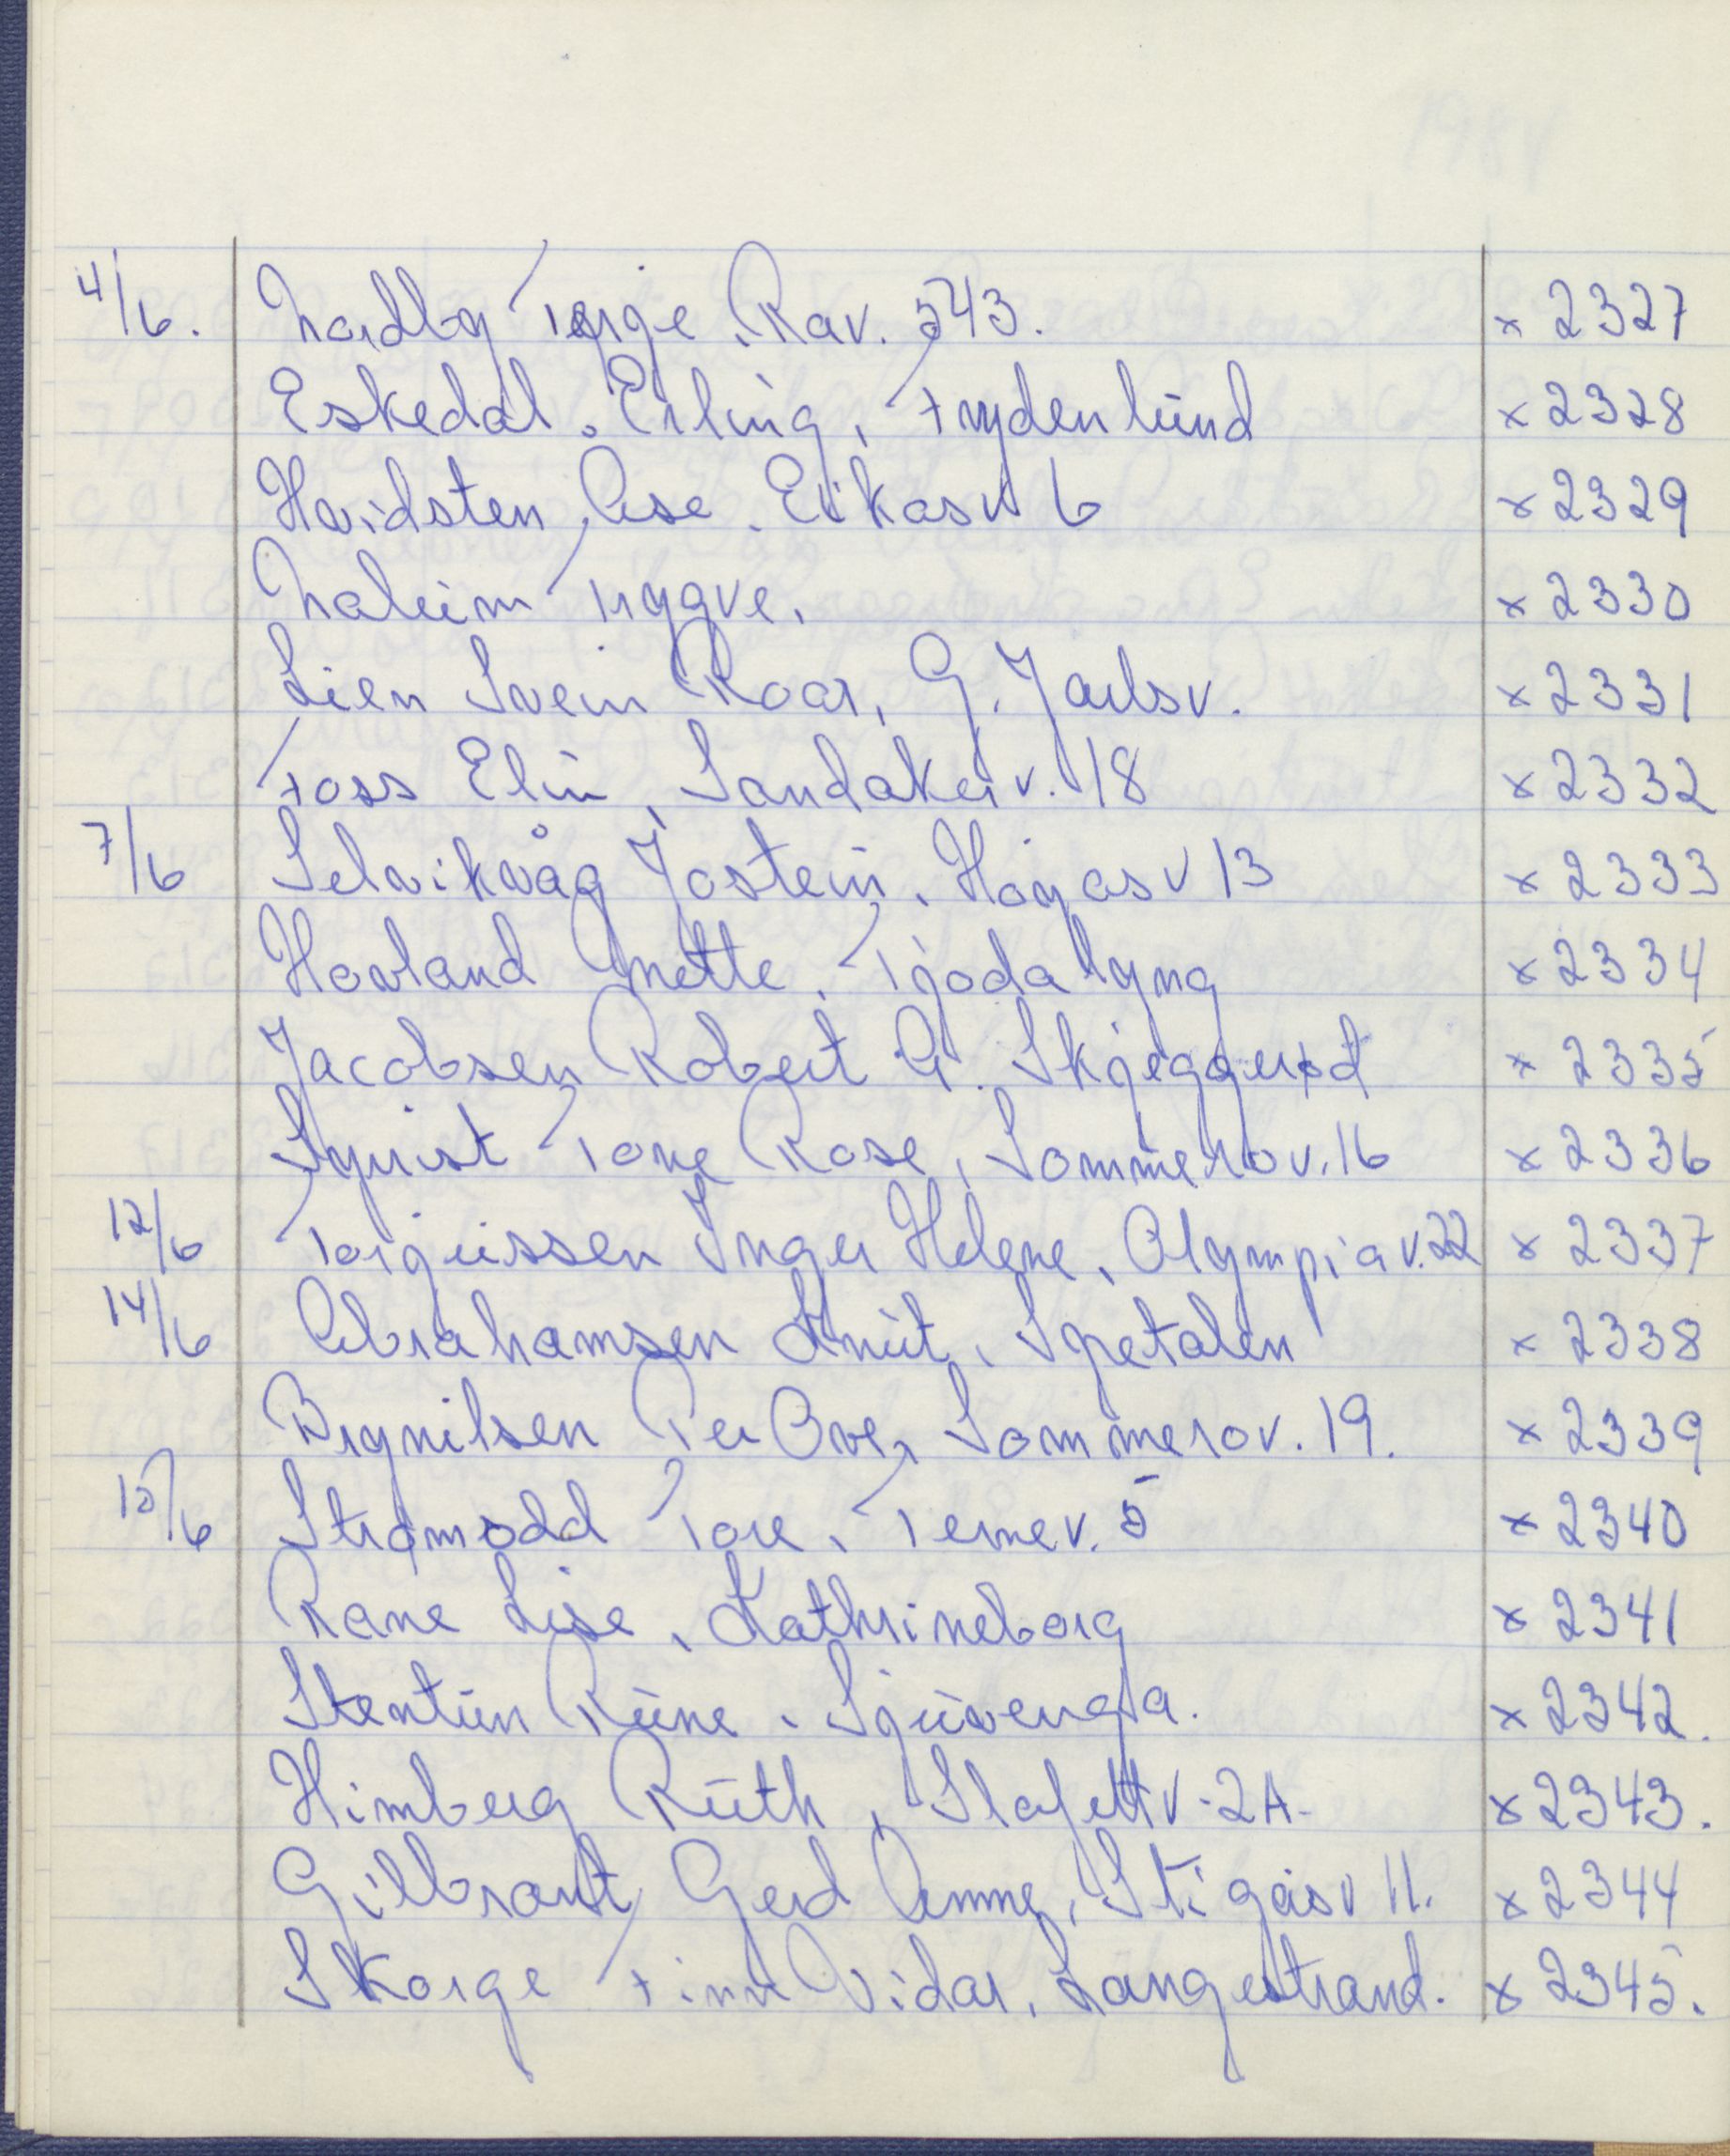 4/6. Nordby Terje, Rav. 543. x 2327
Eskedal, Erling, Frydenlund x 2328
Hvidsten, Åse. Eikåsv 6 x 2329
Naleim Trygve. x 2330
Lien Svein Roar, G. Jarlsv. x 2331
Foss Elin, Sandakerv. 18 x 2332
7/6 Selvikvåg Jostein, Høgåsv 13 x 2333
Hovland Anette, Tjodalyng x 2334
Jacobsen Robert A. Skjeggerød x 2335
Syrist Tone Rose, Sommerov. 16 x 2336
12/6 Torgussen Inger Helene, Olympiav. 22 x 2337
14/6 Abrahamsen Knut, Spetalen x 2338
Brynilsen Per Ove, Sommerov. 19. x 2339
15/6 Strømodd Tore, Ternev. 5 x 2340
Rane Lise, Kathrineborg x 2341
Stentun Rune. Sjuvenga. x 2342.
Himberg Ruth, Slafettv. 2A. x 2343.
Gilbrant Gerd Anne, Stigåsv 11. x 2344
Skorge Finn Vidar, Langestrand. x 2345.